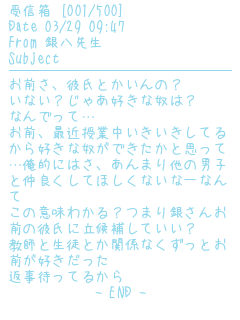 受信箱 [001/500]
Date 03/29 09:47
From 銀八先生
Subject
お前さ、彼氏とかいんの？
いない？じゃあ好きな奴は？
なんでって…
お前、最近授業中いきいきしてる
から好きな奴ができたかと思って
…俺的にはさ、あんまり他の男子
と仲良くしてほしくないな―なん
て
この意味わかる？つまり銀さんお
前の彼氏に立候補していい？
教師と生徒とか関係なくずっとお
前が好きだった
返事待ってるから
~ END ~